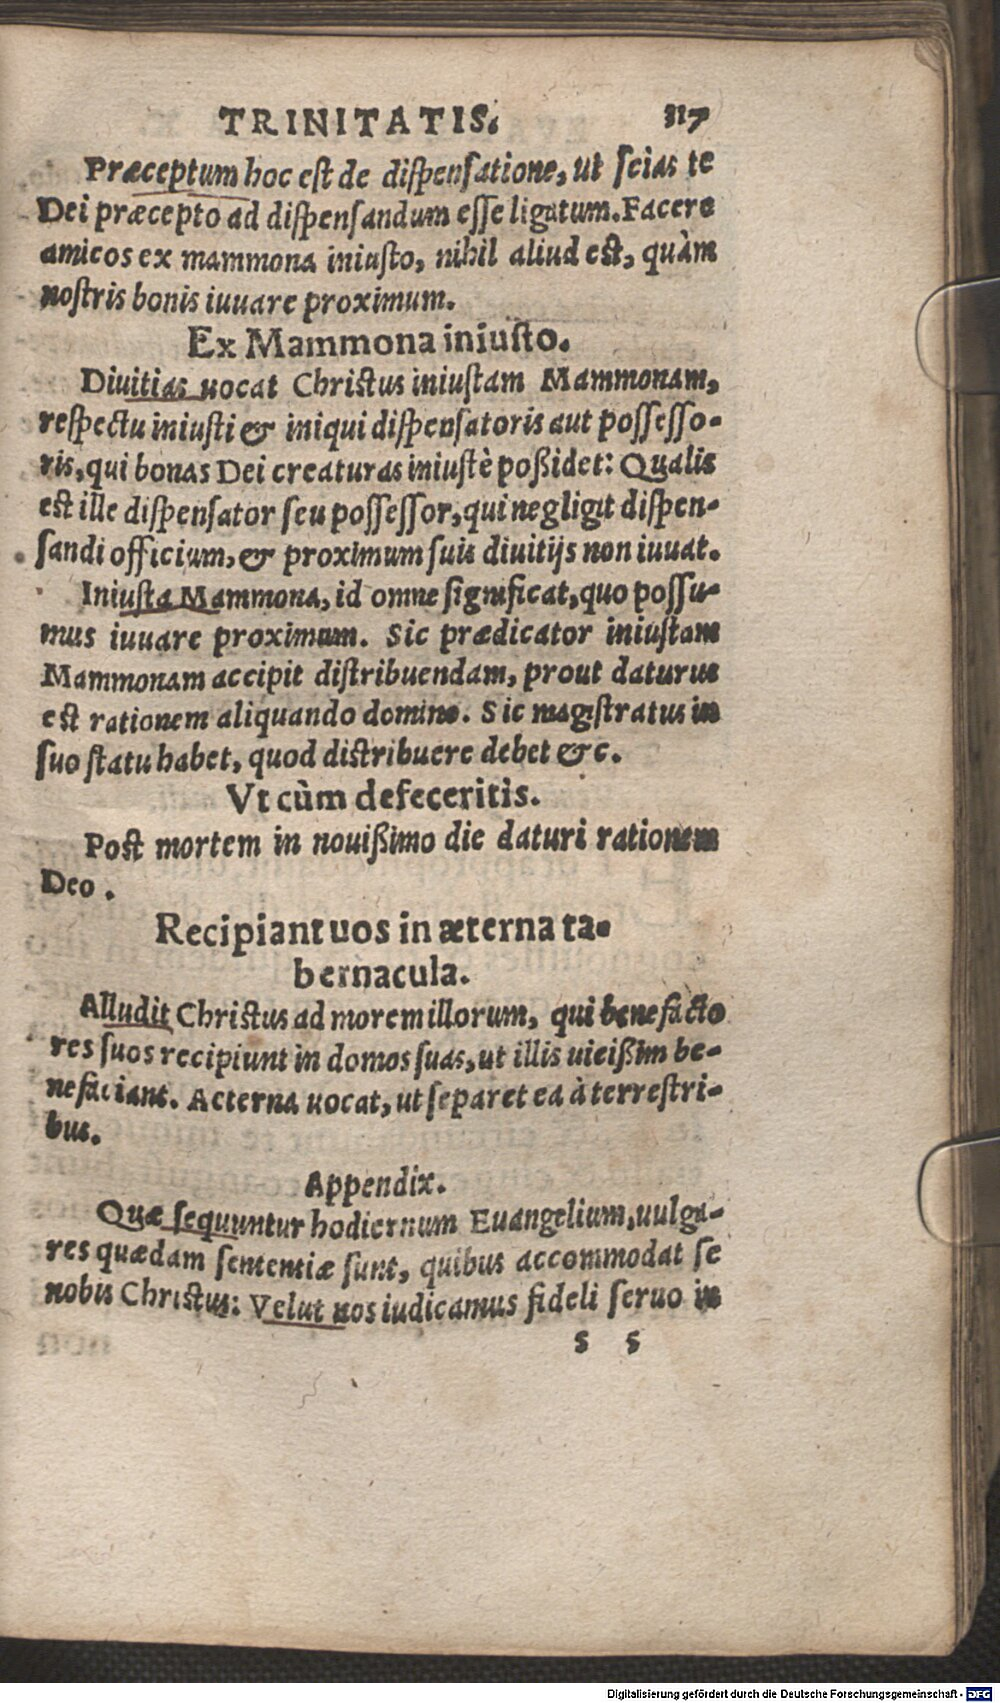 TRINITATIS. 317
Præceptum hoc est de dispensatione, ut scias te
Dei præcepto ad dispensandum esse ligatum. Facere
amicos ex mammona iniusto, nihil aliud est, quàm
nostris bonis iuuare proximum.
Ex Mammona iniusto.
Diuitias uocat Christus iniustam Mammonam,
respectu iniusti & iniqui dispensatoris aut possesso-
ris, qui bonas Dei creaturas iniustè poßidet: Qualis
est ille dispensator seu possessor, qui negligit dispen-
sandi officium, & proximum suis diuitijs non iuuat.
Iniusta Mammona, id omne significat, quo possu-
mus iuuare proximum. Sic prædicator iniustam
Mammonam accipit distribuendam, prout daturus
est rationem aliquando domino. Sic magistratus in
suo statu habet, quod distribuere debet &c.
Vt cùm defeceritis.
Post mortem in nouißimo die daturi rationem
Deo.
Recipiant uos in æterna ta-
bernacula.
Alludit Christus ad morem illorum, qui benefacto
res suos recipiunt in domos suas, ut illis uicißim be-
nefaciant. Aeterna uocat, ut separet ea à terrestri-
bus.
Appendix.
Quæ sequuntur hodiernum Euangelium, uulga-
res quædam sententiæ sunt, quibus accommodat se
nobis Christus: Velut nos iudicamus fideli seruo in
s s
Digitalisierung gefördert durch die Deutsche Forschungsgemeinschaft - DFG